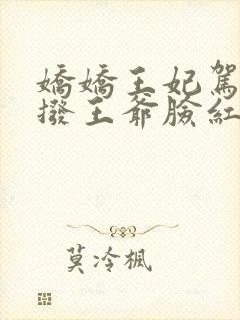 嬌嬌王妃駕
撥王爺臉紅
莫冷楓